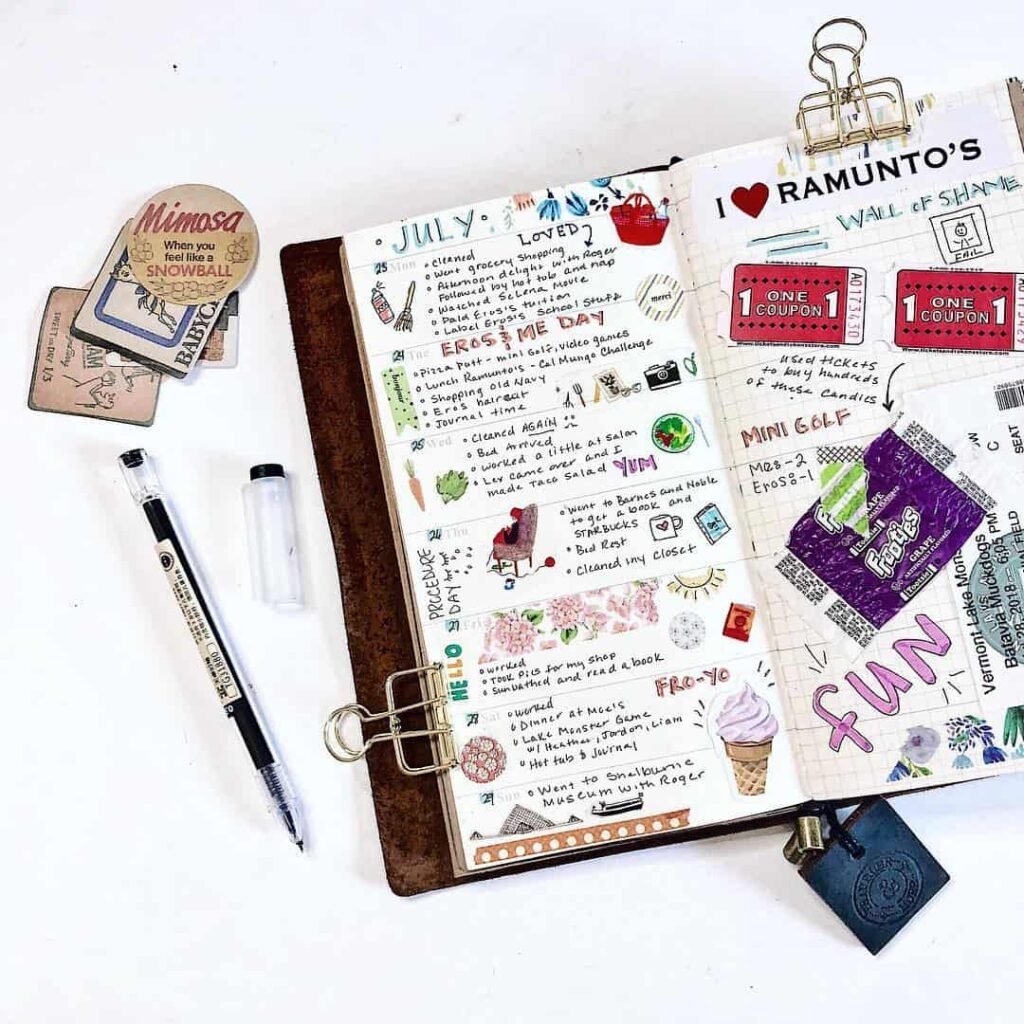 Mimosa
When you
feel like a
SNOWBALL
BABYC
SWEET OR DRY 1/3
JULY:
LOVED
25 Mon
cleaned
Went grocery shopping
Afternoon delight with Roger
Followed by hot tub and nap
Watched Selena Movie
Paid Eros's tuition
Label Eros's School Stuff
merci
24 Tue
EROS & ME DAY
bonjour
Pizza Putt - mini Golf, video games
Lunch Ramunto's - Cal Mungo Challenge
Shopping Old Navy
Eros haircut
Journal time
25 Wed
Cleaned AGAIN
Bed Arrived
Worked a little at salon
Lex came over and I
made Taco Salad YUM
26 Thu
PROCEDURE
DAY for me
Went to Barnes and Noble
to get a book and
STARBUCKS
Bed Rest
Cleaned my closet
27 Fri
HELLO
worked
Took pics for my shop
Sunbathed and read a book
Sat
worked
Dinner at Moe's
Lake Monster Game
w/ Heather, Jordon, Liam
Hot tub & Journal
FRO-YO
29 Sun
Went to Shelburne
Museum with Roger
I ❤ RAMUNTO'S
WALL OF SHAME
FAIL
1 ONE COUPON 1
A0173430
1 ONE COUPON 1
used tickets
to buy hundreds
of these candies
MINI GOLF
Mes-2
Eros-1
Frooties
GRAPE
Tootsie
FUN
Vermont Lake Mons
vs. Nickdogs
Batavia Mu
2018 - 6:05 PM
FIELD